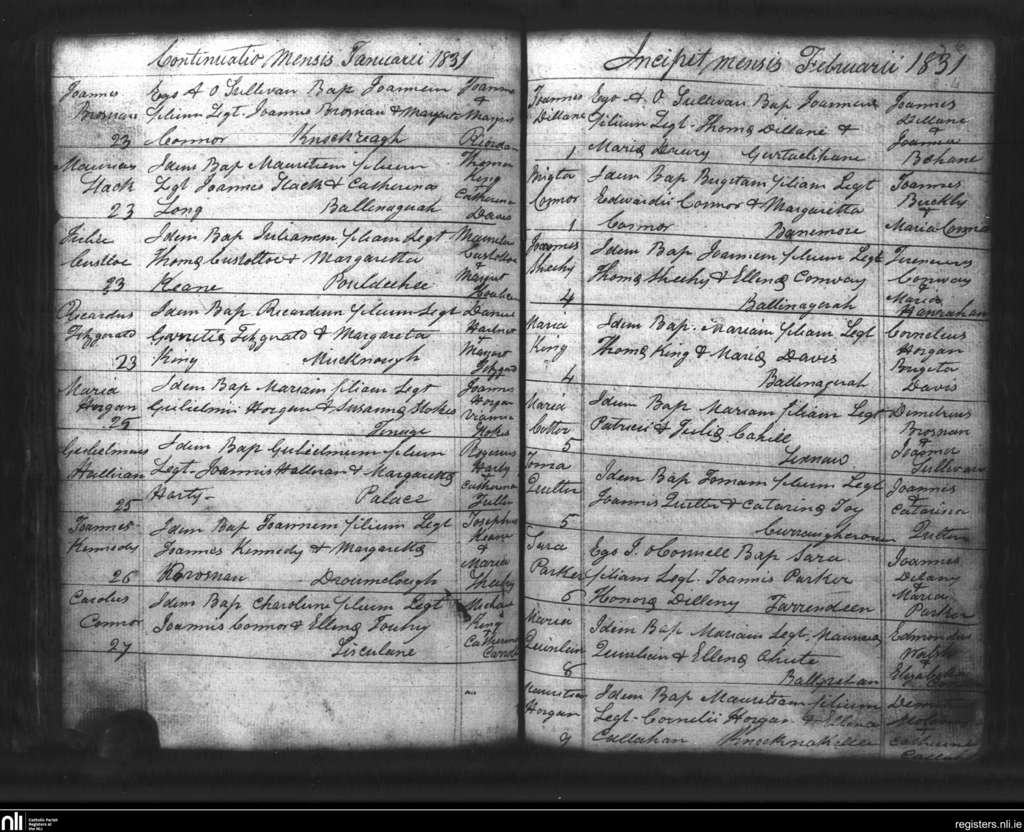 Continuatio Mensis Januarii 1831
Joannes
Brosnan
23
Ego A O Sullivan Bap Joannem
filium Legt. Joannis Brosnan & Margart
Connor Knockreagh
Joannes
&
Margart
Riordan
Mauritius
Stack
23
Idem Bap Mauritium filium
Lgt Joannis Stack & Catherina
Long Ballinagerah
Thomas
King
+
Catherine
Davis
Julia
Custloe
23
Idem Bap Julianem filiam Legt
Thoma Custoltoe & Margaretta
Keane
Margart
Ricardus
Fitzgerald
23
Idem Bap Ricardum filium Legt
Fitzgerald & Margareta
King Mucknough
Daniel
&
Margart
Fitzgerald
Maria
Horgan
25
Idem Bap Mariam filiam Legt
Gulielmii Horgan & Susanna Stokes
Tinage
Joannes
Horgan
Gulielmus
Hallinan
25
Idem Bap Gulielmum filium
Legt. Joannis Halleran & Margaretta
Harty- Palace
Rogerus
Harty
+
Catherina
Fuller
Joannes
Kennedy
26
Idem Bap Joannem filium Legt
Joannis Kennedy & Margaretta
Brosnan Droumclough
Josephus
Keane
&
Maria
Sheehy
Carolus
Connor
27
Idem Bap Charolum filium Legt
Joannis Connor & Ellena
Lisculane
Michael
King
Catherina
Incipit mensis Februarii 1831
Joannes
Dillane
1
Ego A. O Sullivan Bap Joannem
filium Legt. Thoma Dillane &
Maria Drury Gurtaclihane
Joannes
Dillane
&
Joanna
Bohane
Brigta
Connor
1
Idem Bap Brigetam filiam Legt
Edwardii Connor & Margaretta
Connor Banemore
Joannes
Buckly
+
Maria Connor
Joannes
Sheehy
4
Idem Bap Joannem filium Legt
Thoma Sheehy & Ellena Conway
Ballinagerah
Conway
+
Maria
Hanrahan
Maria
King
4
Idem Bap. Mariam filiam Legt
Thoma King & Maria Davis
Ballinagerah
Cornelius
Horgan
Brigeta
Davis
Maria
5
Idem Bap Mariam filiam Legt
Patricii & Julia Cahill
Lixnaw
Brosnan
&
Joanna
Sullivan
Toma
Quitter
5
Idem Bap Tomam filium Legt
Joannis Quitter & Catarina Joy
Joannis
&
Catarina
Quitter
Sara
Parker
6
Ego J. oConnell Bap Sara
filiam Legt. Joannis Parker
Honora Dilleny Farrendeen
Joannes
Delany
&
Maria
Parker
Maria
Quinlan
8
Idem Bap Mariam Legt. Mauricii
Quinlan & Ellena Chute
Edmondus
Walsh
+
Mauritius
Horgan
9
Idem Bap Mauritium filium
Legt. Cornelii Horgan & Ellena
Callahan
+
Catherine
nli
Catholic Parish
Registers at
the NLI
registers.nli.ie